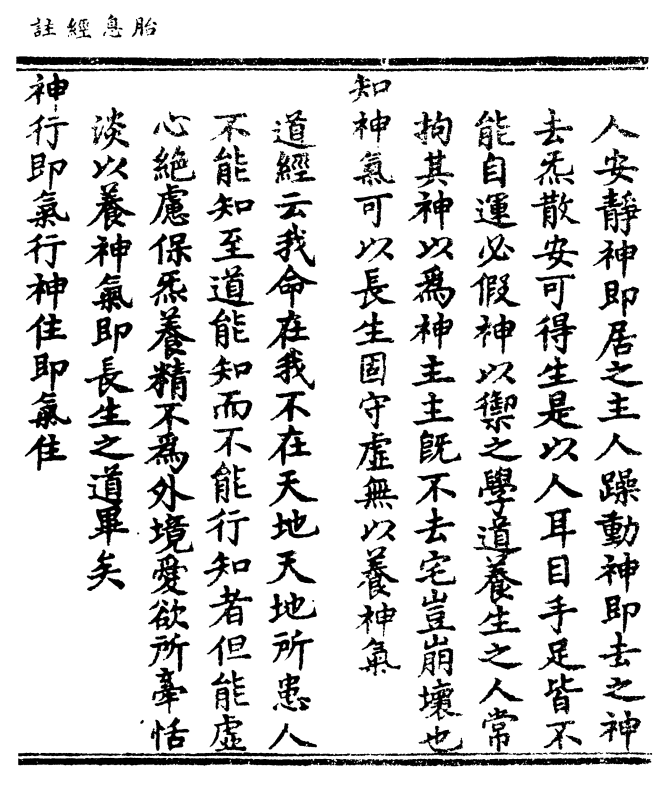 胎息經註
人安靜神即居之主人躁動神即去之神
去炁散安可得生是以人耳目手足皆不
能自運必假神以禦之學道養生之人常
拘其神以爲神主主旣不去宅豈崩壞也
知神氣可以長生固守虛無以養神氣
道經云我命在我不在天地天地所患人
不能知至道能知而不能行知者但能虛
心絕慮保炁養精不爲外境愛欲所牽恬
淡以養神氣即長生之道畢矣
神行即氣行神住即氣住